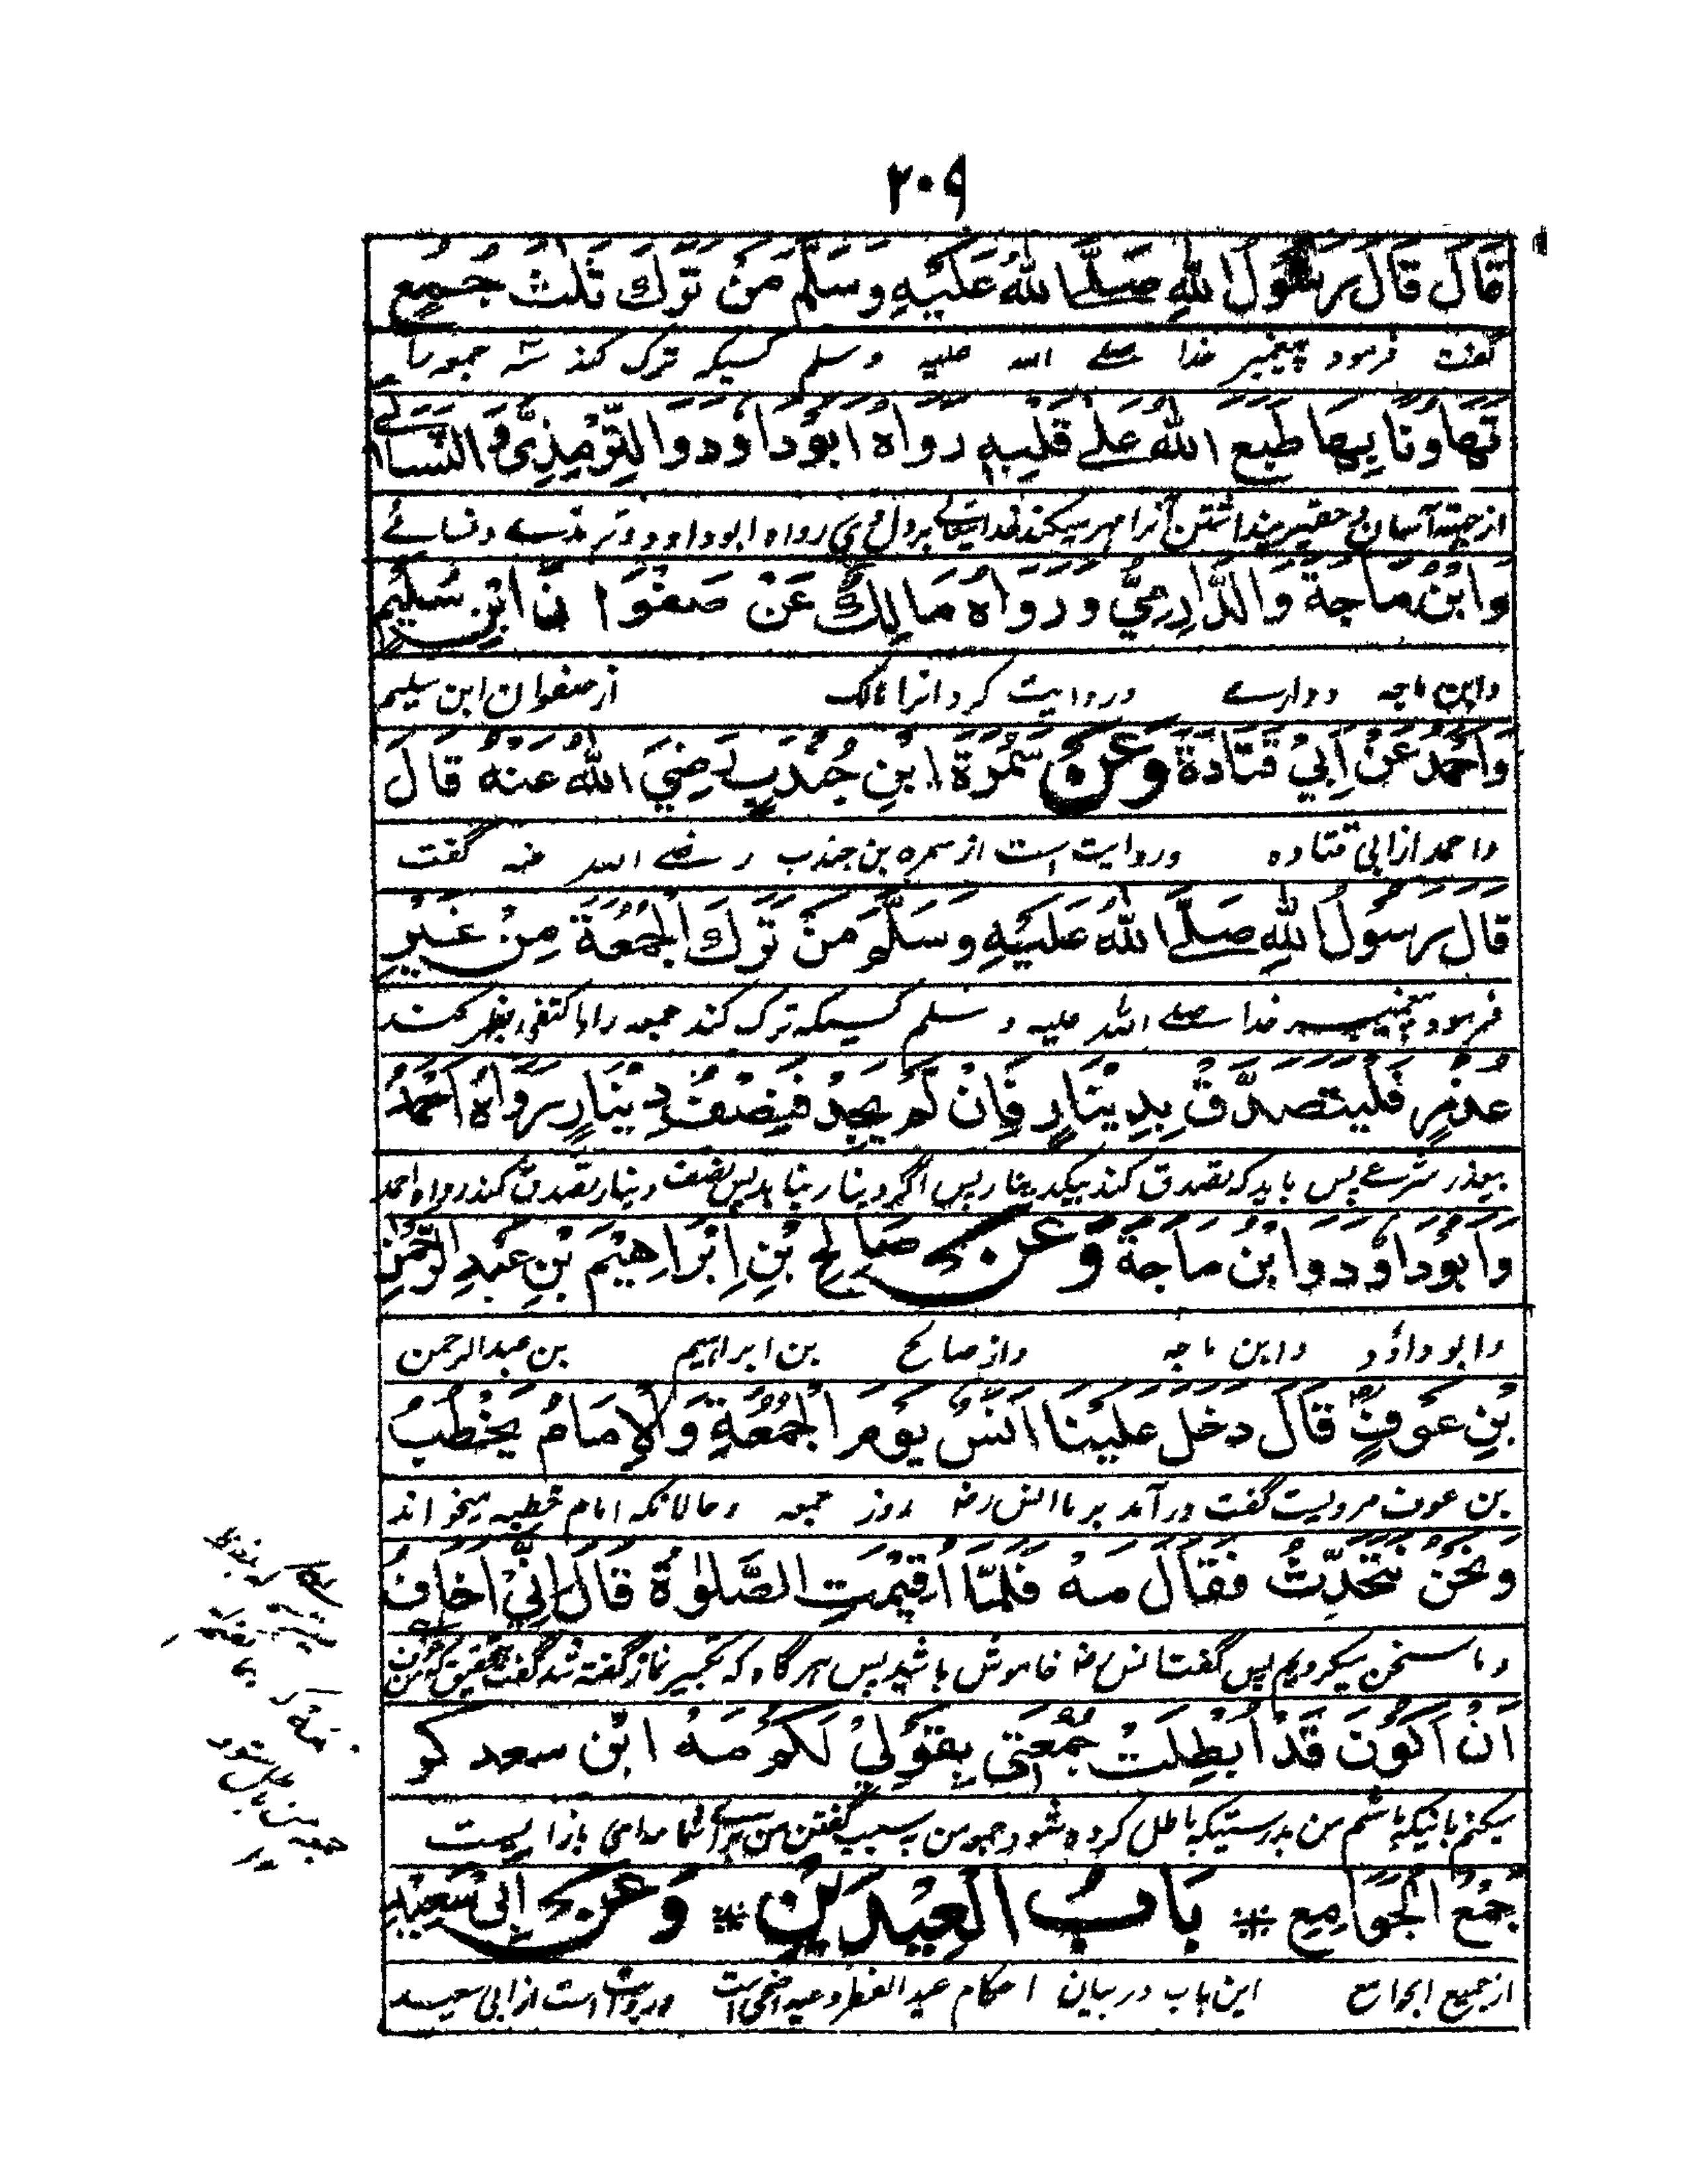 ٢٠٩
قَالَ قَالَ رَسُوْلُ اللّٰهِ صَلَّے اللّٰهُ عَلَيْهِ وَسَلَّمَ مَنْ تَرَكَ ثَلٰثَ جُمَعٍ
گفت فرمود پیغمبر خدا صلے اللہ علیہ وسلم کسیکہ ترک کند سہ جمعہ را
تَهَاوُنًا بِهَا طَبَعَ اللّٰهُ عَلٰے قَلْبِهٖ رَوَاهُ اَبُوْدَاوٗدَ وَالتِّرْمِذِيُّ وَالنَّسَائِے
از جہتہ آسان و حقیر پنداشتن آنرا مہر میکند خدایتعالے بر دل وی رواہ ابوداود وترمذے ونسائے
وَابْنُ مَاجَةَ وَالدَّارِمِيُّ وَرَوَاهُ مَالِكٌ عَنْ صَفْوَانَ ابْنِ سُلَيْمٍ
وابن ماجہ ودارمے وروایت کرد انرا مالک از صفوان ابن سلیم
وَاَحْمَدُ عَنْ اَبِيْ قَتَادَةَ وَعَنْ سَمُرَةَ ابْنِ جُنْدَبٍ رَضِيَ اللّٰهُ عَنْهُ قَالَ
واحمد از ابی قتادہ وروایت است از سمرہ بن جندب رضے اللہ عنہ گفت
قَالَ رَسُوْلُ اللّٰهِ صَلَّے اللّٰهُ عَلَيْهِ وَسَلَّمَ مَنْ تَرَكَ الْجُمُعَةَ مِنْ غَيْرِ
فرمود پیغمبر خدا صلے اللہ علیہ وسلم کسیکہ ترک کند جمعہ را
عُذْرٍ فَلْيَتَصَدَّقْ بِدِيْنَارٍ فَاِنْ لَمْ يَجِدْ فَبِنِصْفِ دِيْنَارٍ رَوَاهُ اَحْمَدُ
بیعذر شرعے پس باید کہ تصدق کند بیکدینار پس اگر دینار نیابد پس نصف دینار تصدق کند رواہ احمد
وَاَبُوْدَاوٗدَ وَابْنُ مَاجَةَ وَعَنْ صَالِحِ بْنِ اِبْرَاهِيْمَ بْنِ عَبْدِ الرَّحْمٰنِ
وابوداؤد وابن ماجہ واز صالح بن ابراہیم بن عبدالرحمن
بْنِ عَوْفٍ قَالَ دَخَلَ عَلَيْنَا اَنَسٌ يَوْمَ الْجُمُعَةِ وَالْاِمَامُ يَخْطُبُ
بن عوف مرویست گفت درآمد بر ما انس رضہ روز جمعہ وحالانکہ امام خطبہ میخواند
وَنَحْنُ نَتَحَدَّثُ فَقَالَ مَهْ فَلَمَّا اُقِيْمَتِ الصَّلٰوةُ قَالَ اِنِّيْ اَخَافُ
وما سخن میکردیم پس گفت انس رضہ خاموش باشید پس ہرگاہ کہ تکبیر نماز گفتہ شد گفت بتحقیق کہ من
اَنْ اَكُوْنَ قَدْ اَبْطَلْتُ جُمُعَتِيْ بِقَوْلِيْ لَكُمْ مَهْ ابْنُ سعد كو
میکنم بانیکہ باشم من بدرستیکہ باطل کردہ شود جمعہ من بسبب گفتن من برائے شما
جَمْعُ الْجَوَامِعِ * بَابُ الْعِيْدَيْنِ * وَعَنْ اَبِيْ سَعِيْدٍ
از جمیع الجوامع این باب در بیان احکام عید الفطر وعید اضحی است وروایت است از ابی سعید